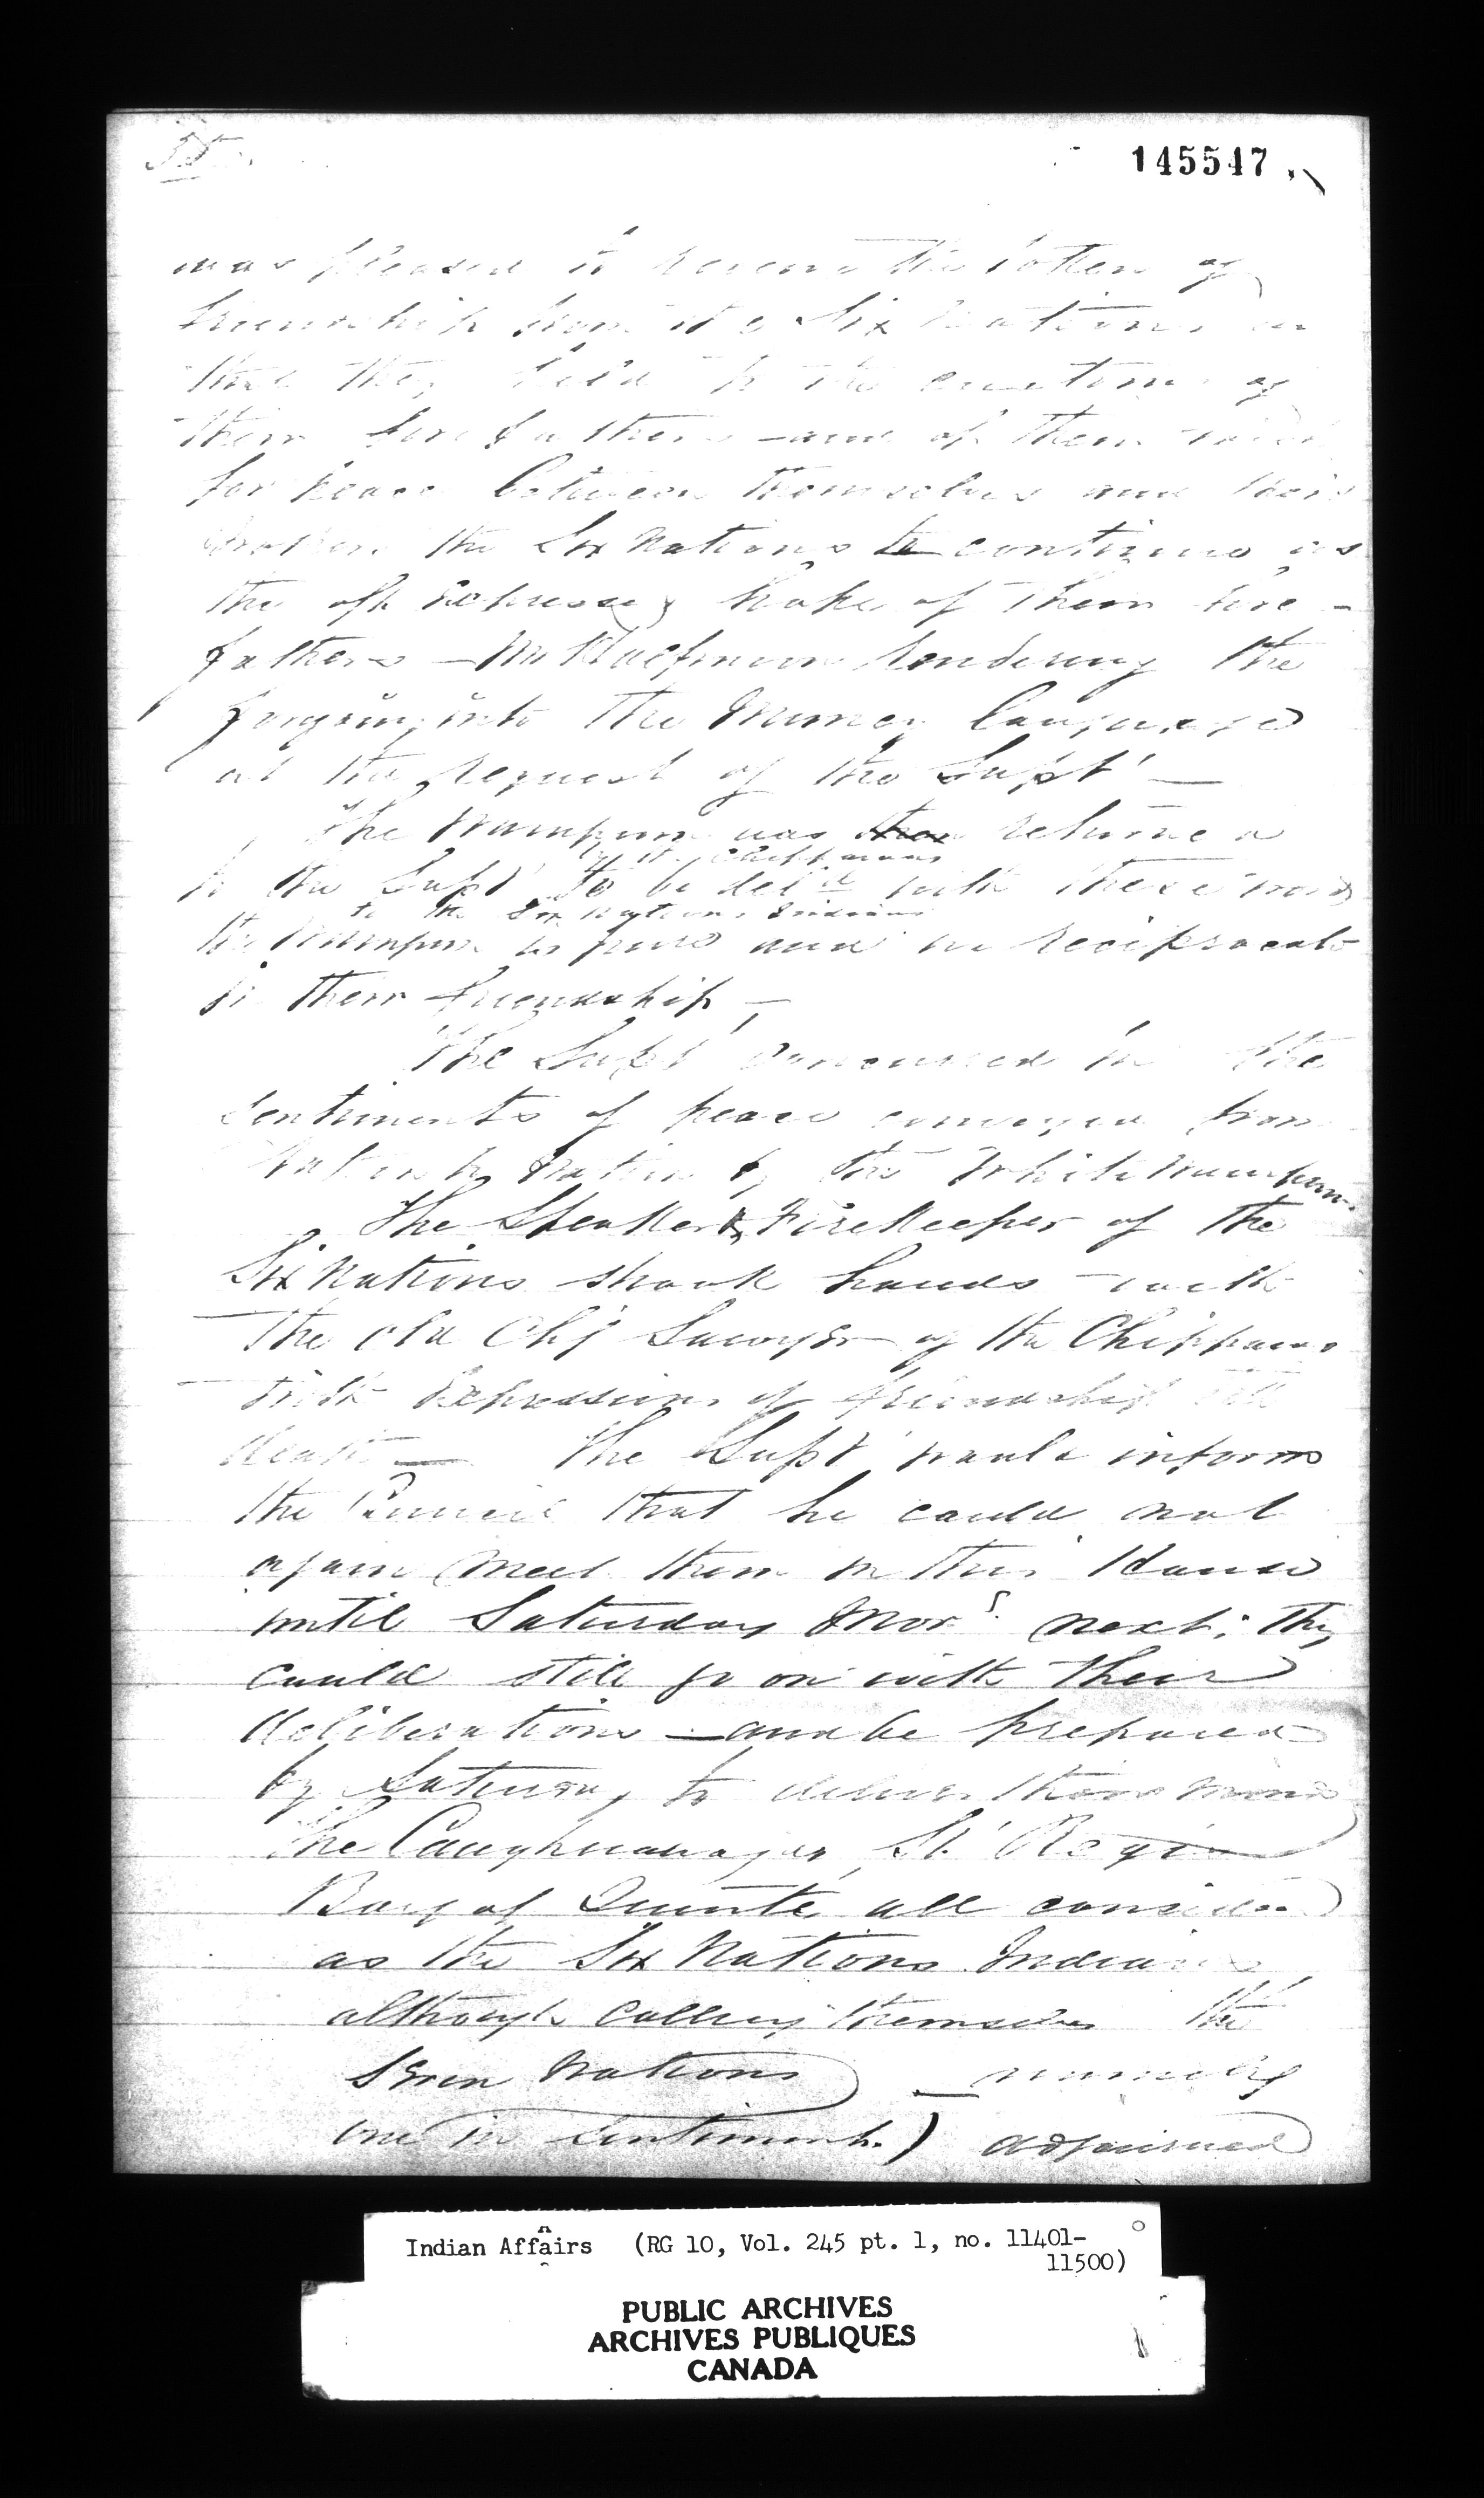 145547
was pleased to receive the token of
friendship from the Six Nations in
that they held to the customs of
their forefathers and of their
for peace between themselves and their
the Six Nations to continue as
the oft expressed hope of their fore -
fathers — Mr rendering the
into the Muncey Language
at the request of the Supt —
The Wampum was then returned
by the Chippawas
to the Supt to be deld with these words
to the Six Nations Indians
the Wampum is pure and we reciprocate
in their friendship —
The Supt concurred in the
sentiments of peace conveyed from
Nation to Nation by the White Wampum.
The Speaker & FireKeeper of the
Six Nations shook hands with
the old Chf Sawyer of the Chippawas
with expressions of friendship till
death — The Supt would inform
the Council that he could not
again meet them in this House
until Saturday Morg next; they
could still go on with their
deliberations — and be prepared
by Saturday to deliver their minds
The Caughnawagas, St Regis
Bay of Quinte, all considered
as the Six Nations Indians
although calling themselves the
Seven Nations) —
one in sentiment.) adjourned
Indian Affairs (RG 10, Vol. 245 pt. 1, no. 11401-
11500)
PUBLIC ARCHIVES
ARCHIVES PUBLIQUES
CANADA